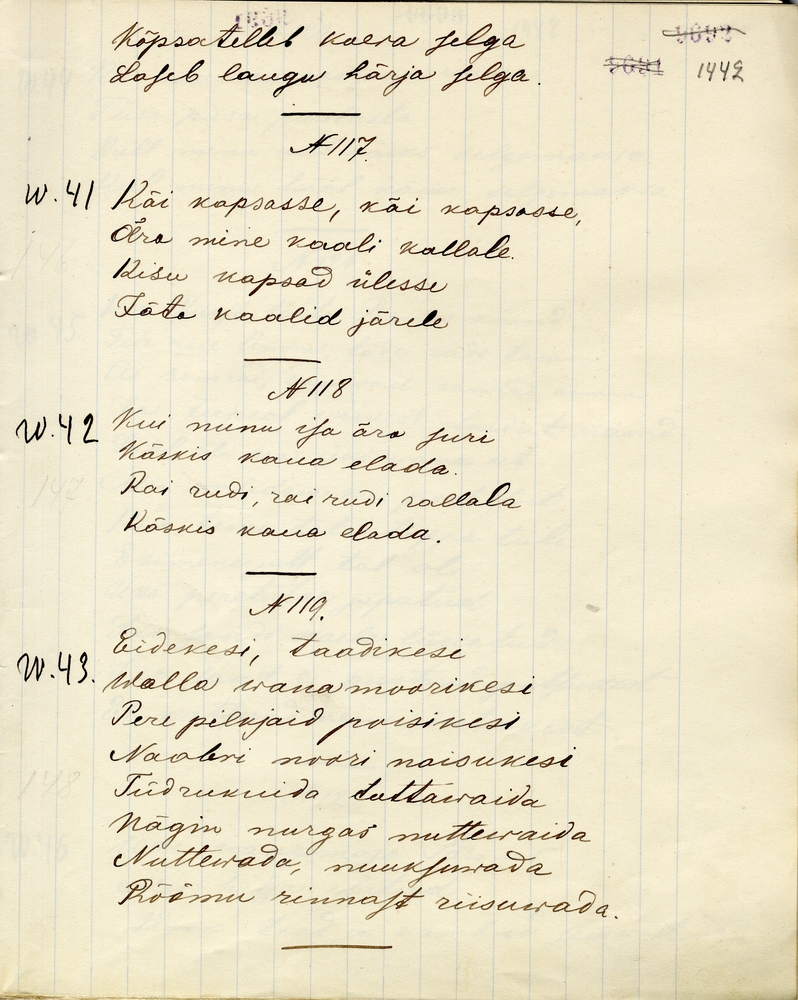 Kõpsatelleb koera selga
Laseb laugu härja selga.
1442
N 117.
W. 41
Käi kapsasse, käi kapsasse,
Ära mine kaali kallale.
Kisu kapsad ülesse
Jäta kaalid järele
N 118
W. 42
Kui minu isa ära suri
Käskis kaua elada.
Rai rudi, rai rudi rallala
Käskis kaua elada.
N 119.
W. 43.
Eidekesi, taadikesi
Walla wana moorikesi
Pere pilkjaid poisikesi
Naabri noori naisukesi
Tüdrukuida tuttawaida
Nägin nurgas nuttewaida
Nuttewada, nuuksuwada
Rõõmu rinnast riisuwada.